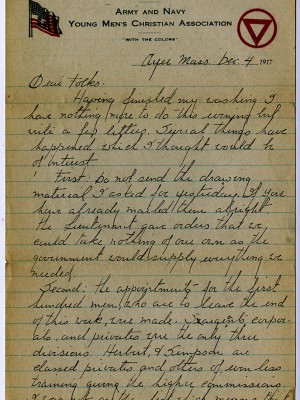 ARMY AND NAVY
YOUNG MEN'S CHRISTIAN ASSOCIATION
"WITH THE COLORS"
Ayer Mass. Dec. 4 1917
Dear folks:
Having finished my washing I
have nothing more to do this evening but
write a few letters. Several things have
happened which I thought would be
of interest.
First: Do not send the drawing
material I asked for yesterday. If you
have already mailed them alright.
The lieutenant gave orders that we
could take nothing of our own as the
government would supply everything we
needed.
Second: the appointments for the first
hundred men, who are to leave the end
of this week, were made. Sergeants, corpor-
als, and privates are the only three
divisions. Herbert, & Simpson are
classed privates and others of even less
training given the higher commissions.